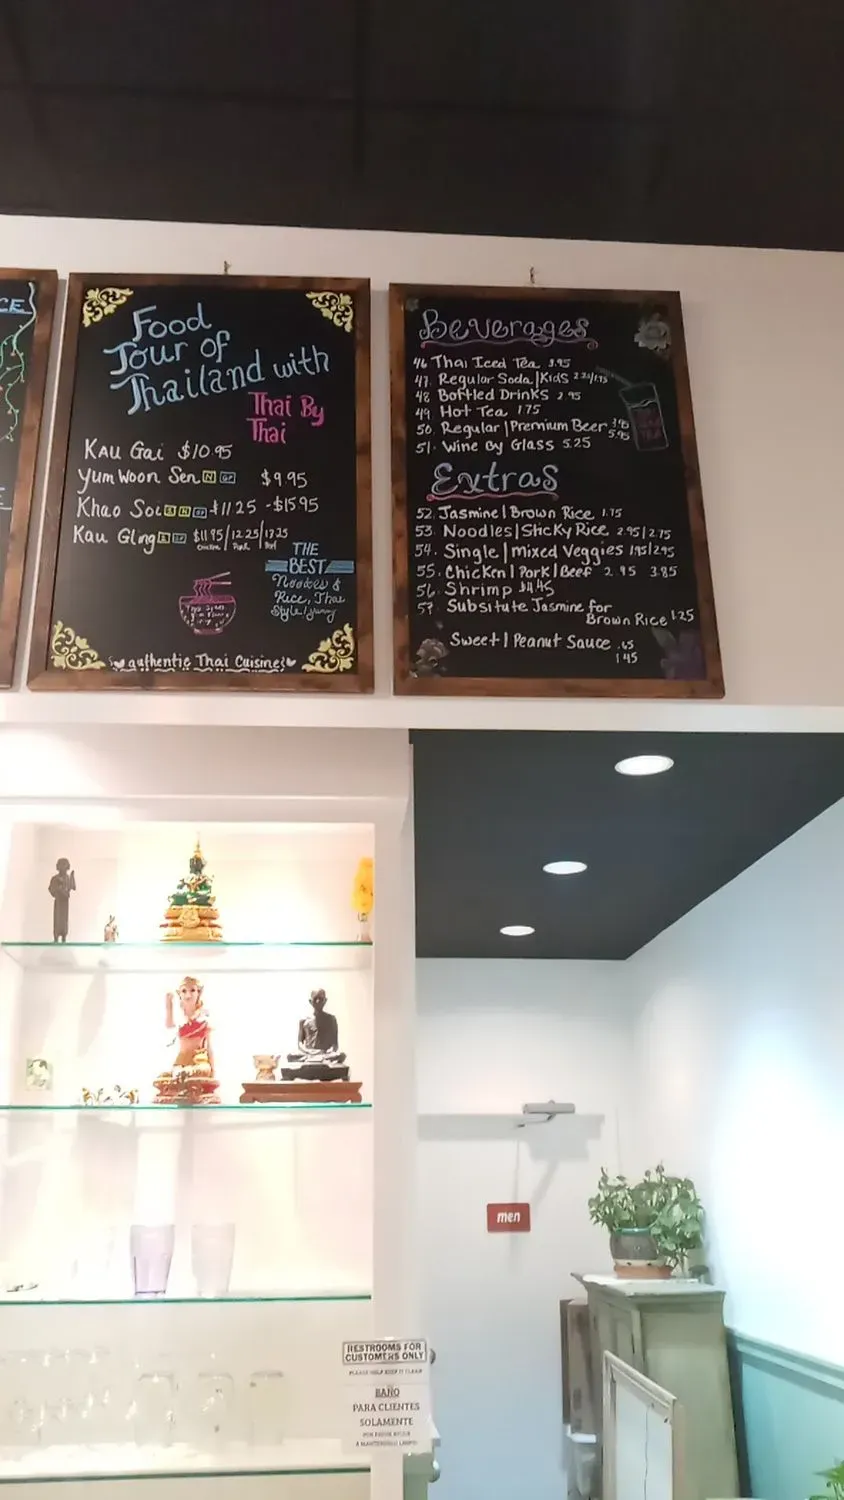 CE
Food
Tour of
Thailand with
Thai By
Thai
Kau Gai $10.95
Yum Woon Sen $9.95
Khao Soi $11.25 - $15.95
Kau Gling $11.95/12.25/13.25
Pork
THE
BEST
Noodles &
Rice, Thai
Style! yummy
authentic Thai Cuisine
Beverages
46 Thai Iced Tea 3.95
47. Regular Soda/Kids 2.25/1.75
48 Bottled Drinks 2.95
49. Hot Tea 1.75
50. Regular/Premium Beer 3.95
5.95
51. Wine By Glass 5.25
Extras
52. Jasmine/Brown Rice 1.75
53. Noodles/Sticky Rice 2.95/2.75
54. Single/mixed Veggies 1.95/2.95
55. Chicken/Pork/Beef 2.95 3.85
56. Shrimp $4.45
57. Subsitute Jasmine for
Brown Rice 1.25
Sweet/Peanut Sauce .65
1.45
men
RESTROOMS FOR
CUSTOMERS ONLY
PLEASE HELP KEEP IT CLEAN
BAÑO
PARA CLIENTES
SOLAMENTE
POR FAVOR AYUDE
A MANTENERLO LIMPIO